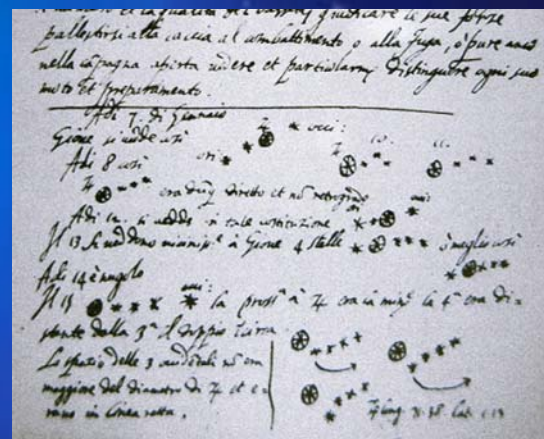 et la qualità de i Vasselli giudicare le sue forze
pallestirsi alla caccia al combattimento o alla fuga, o pure anco
nella campagna aperta vedere et particolarmᵉ distinguere ogni suo
moto et preparamento.
Adi 7. di Gennaio
Gione si vede così
Adi 8 così
era dūq diretto et nō retrogrado
Adi 12. si vedde in tale costituzione
Il 13 si veddono vicinissᵉ à Giove 4 stelle ò meglio così
Adi 14 è nugolo
Il 15 la prossᵃ à ♃ era la minʳᵉ la 4ᵃ era di-
stante dalla 3ᵃ il doppio circa
Lo spazio delle 3 occidentali nō era
maggiore del diametro di ♃ et e-
rano in linea retta.
♃ long. 71.38 lat. 1.13